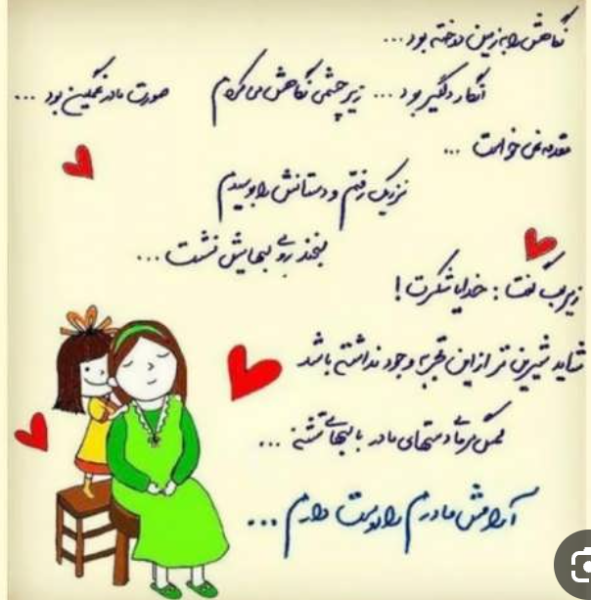 نگاهش را به زمین دوخته بود ...
انگار دلگیر بود ... زیر چشمی نگاهش می کردم
صورت مادر غمگین بود ...
مقدمه نمی خواست ...
نزدیک رفتم و دستانش را بوسیدم
لبخند روی لبهایش نشست ...
زیر لب گفت : خدایا شکرت !
شاید شیرین تر از این تجربه وجود نداشته باشد
لمس گرمای دستهای مادر با لبهای تشنه ...
آرامش مادرم را دوست دارم ...